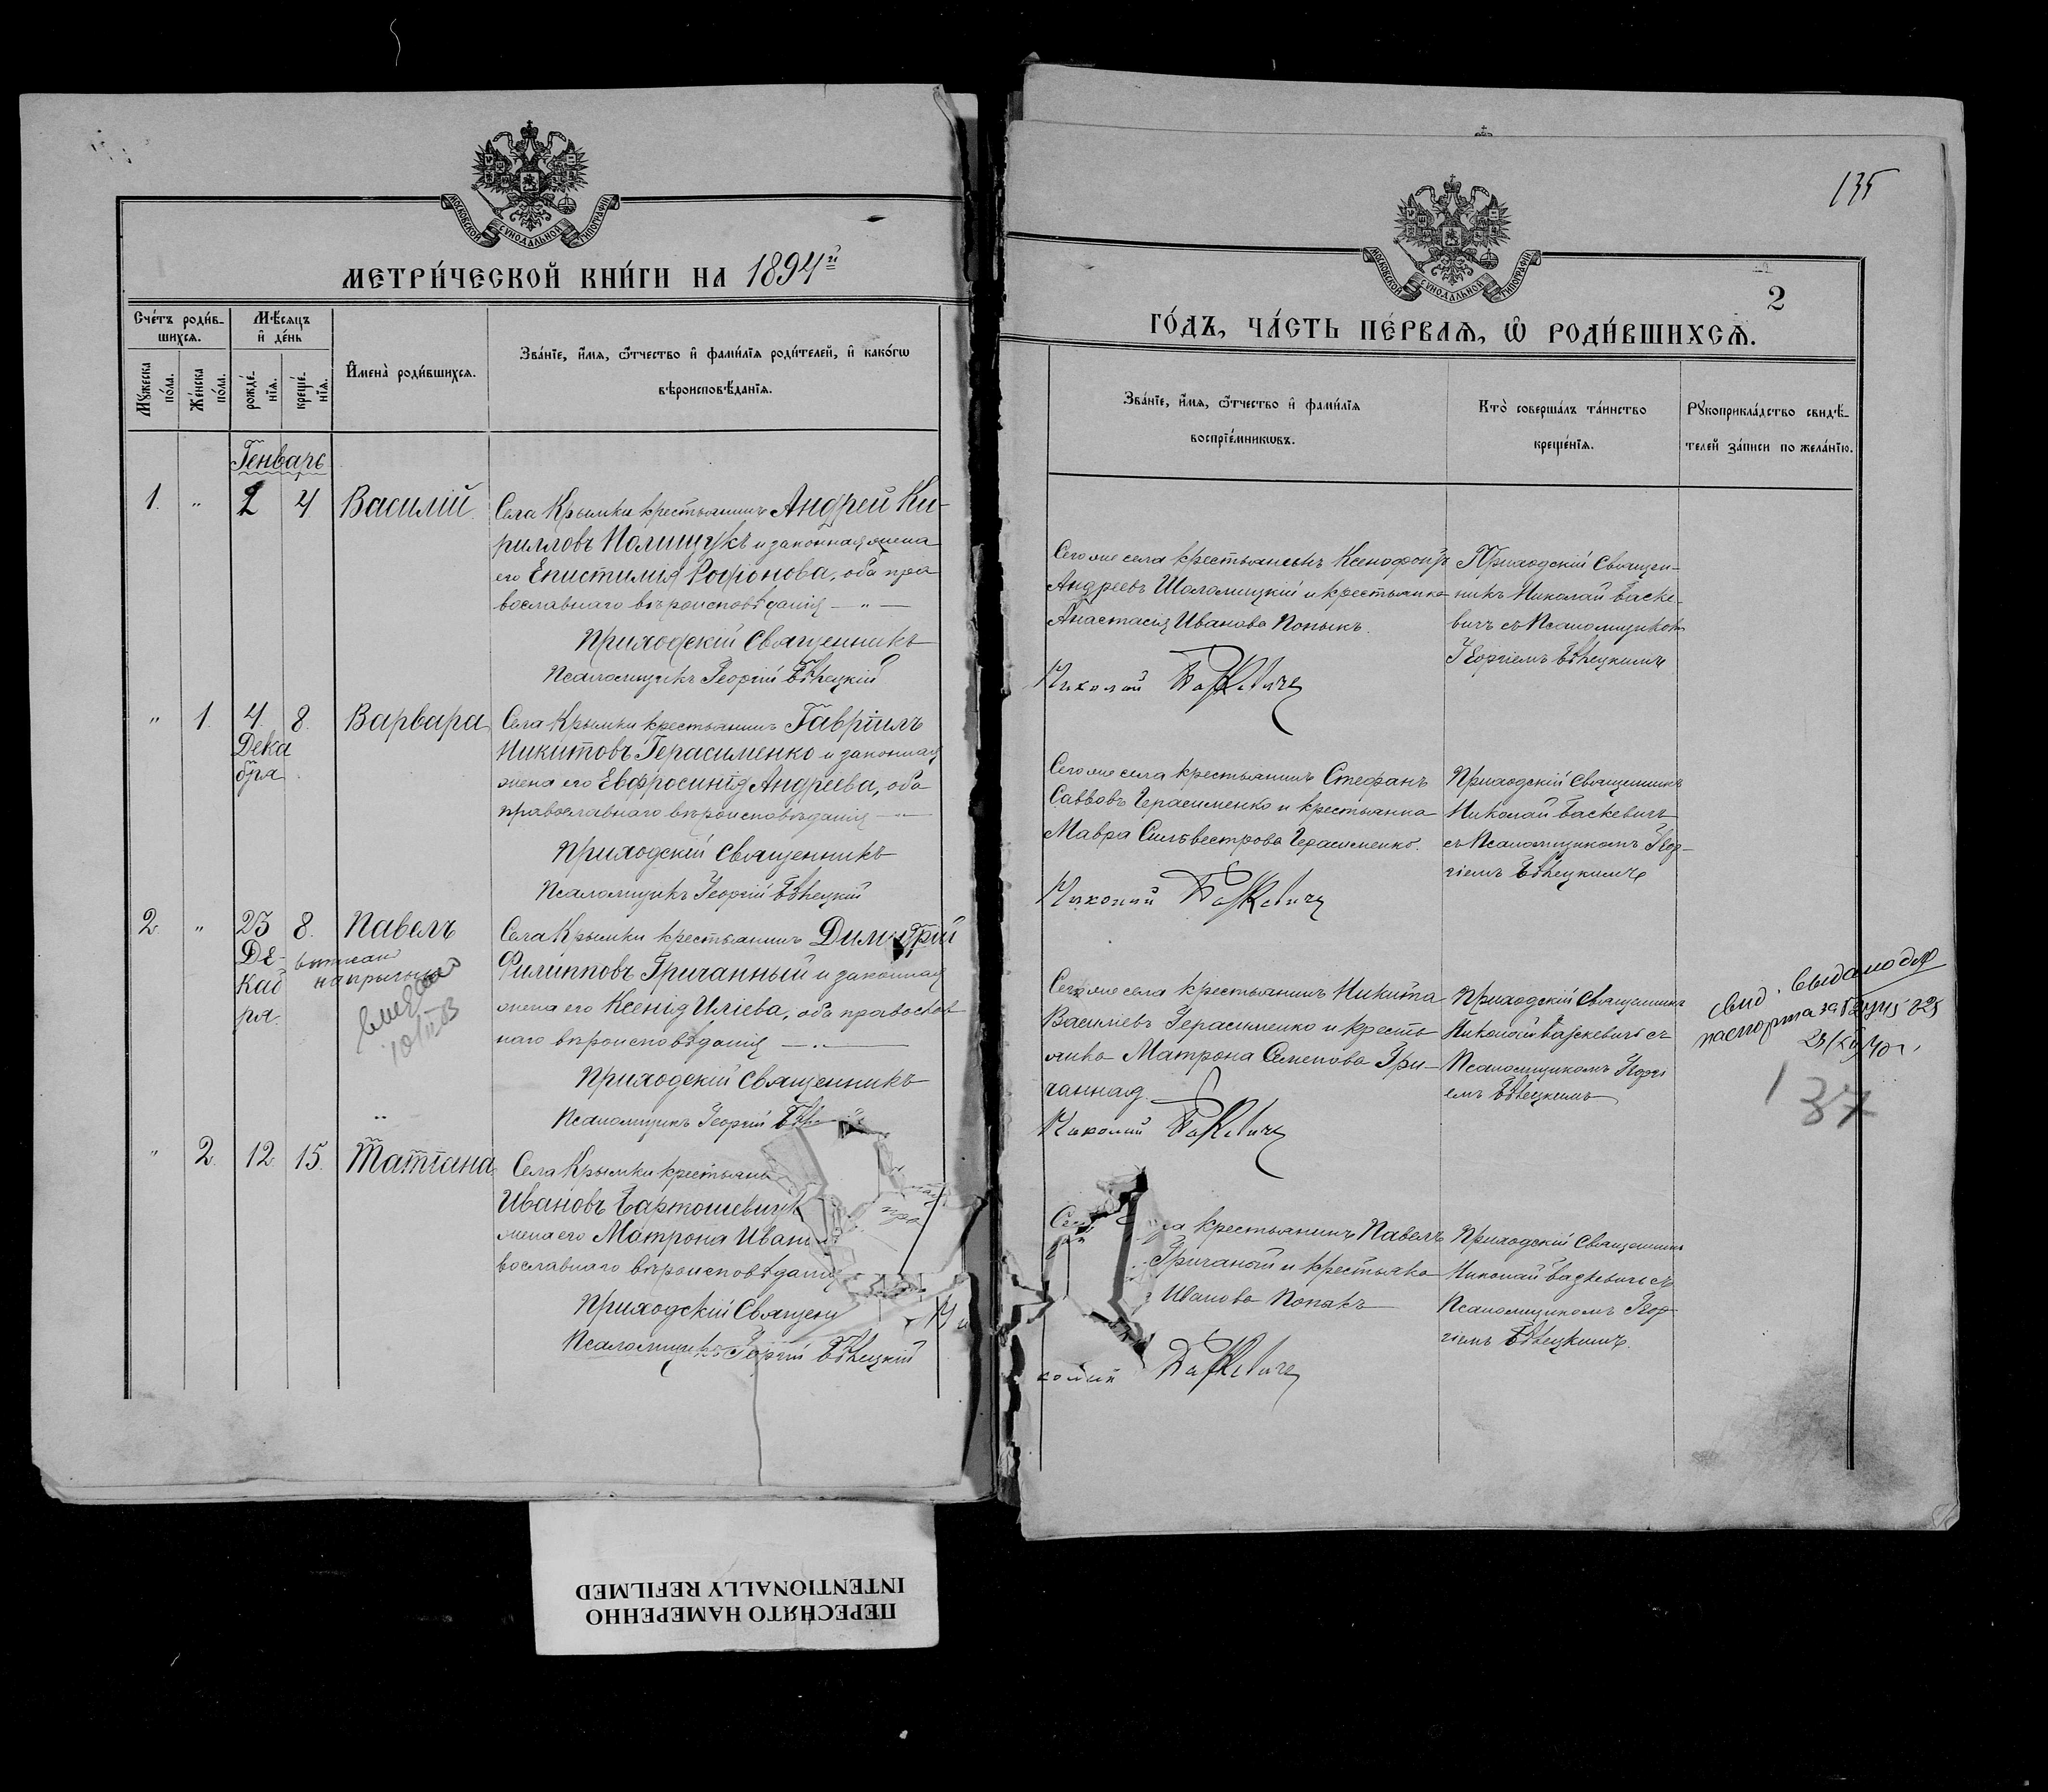 МОСКОВСКОЙ СУНОДАЛЬНОЙ ТИПОГРАФІИ
МЕТРИ́ЧЕСКОЙ КНИ́ГИ НА 1894й
Сче́тъ роди́в-
шихсѧ.
Мѣ́сѧцъ
и҆ де́нь
Мꙋ́жеска
по́ла.
Же́нска
по́ла.
рожде́-
нїѧ.
креще́-
нїѧ.
И҆мена̀ роди́вшихсѧ.
Зва́нїе, и҆́мѧ, ѻ҆́тчество и҆ фами́лїѧ роди́телей, и҆ како́гѡ
вѣроисповѣ́данїѧ.
Генварь
1. " 2 4 Василій
Села Крымки крестьянинъ Андрей Ки-
рилловъ Полищукъ и законная жена
его Епистимія Родіонова, оба пра
вославнаго вѣроисповѣданія — " —
Приходскій Священникъ
Псаломщикъ Георгій
" 1. 4 8. Варвара
Дека
бря
Села Крымки крестьянинъ Гавріилъ
Никитовъ Герасименко и законная
жена его Евфросинія Андреева, оба
православнаго вѣроисповѣданія — " —
Приходскій Священникъ
Псаломщикъ Георгій
2. " 23 8. Павелъ
Де-
каб
ря.
Села Крымки крестьянинъ Димитрій
Филипповъ Гричанный и законная
жена его Ксенія Иліева, оба православ
наго вѣроисповѣданія — " —
Приходскій Священникъ
Псаломщикъ Георгій
" 2. 12 15. Татіана
Села Крымки крестьян
Ивановъ Бартошевич
жена его Матрона Иван
пра
вославнаго вѣроисповѣданія
Приходскій Священ
Псаломщикъ Георгій
135
МОСКОВСКОЙ СУНОДАЛЬНОЙ ТИПОГРАФІИ
2
ГО́ДЪ, ЧА́СТЬ ПЕ́РВАѦ, Ѽ РОДИ́ВШИХСѦ.
Зва́нїе, и҆́мѧ, ѻ҆́тчество и҆ фами́лїѧ
воспрїе́мникѡвъ.
Кто̀ соверша́лъ та́инство
креще́нїѧ.
Рꙋкоприкла́дство свидѣ́-
телей за́писи по жела́нїю.
Сего же села крестьянинъ Ксенофонтъ
Андреевъ и крестьянка
Анастасія Иванова Попыкъ.
Николай Баскевичъ
Приходскій Священ-
никъ Николай Баске-
вичъ съ Псаломщикомъ
Георгіемъ
Сего же села крестьянинъ Стефанъ
Саввовъ Герасименко и крестьянка
Мавра Сильвестрова Герасименко.
Николай Баскевичъ
Приходскій Священникъ
Николай Баскевичъ
съ Псаломщикомъ Геор-
гіемъ
Сего же села крестьянинъ Никита
Василіевъ Герасименко и кресть
янка Матрона Семенова Гри-
чанная.
Николай Баскевичъ
Приходскій Священникъ
Николай Баскевичъ съ
Псаломщикомъ Георгі
емъ
свид. выдано для
паспорта
137
крестьянинъ Павелъ
Гричаной и крестьянка
Иванова Попыкъ
колай Баскевичъ
Приходскій Священникъ
Николай Баскевичъ съ
Псаломщикомъ Геор-
гіемъ
ПЕРЕСНЯТО НАМЕРЕННО
INTENTIONALLY REFILMED